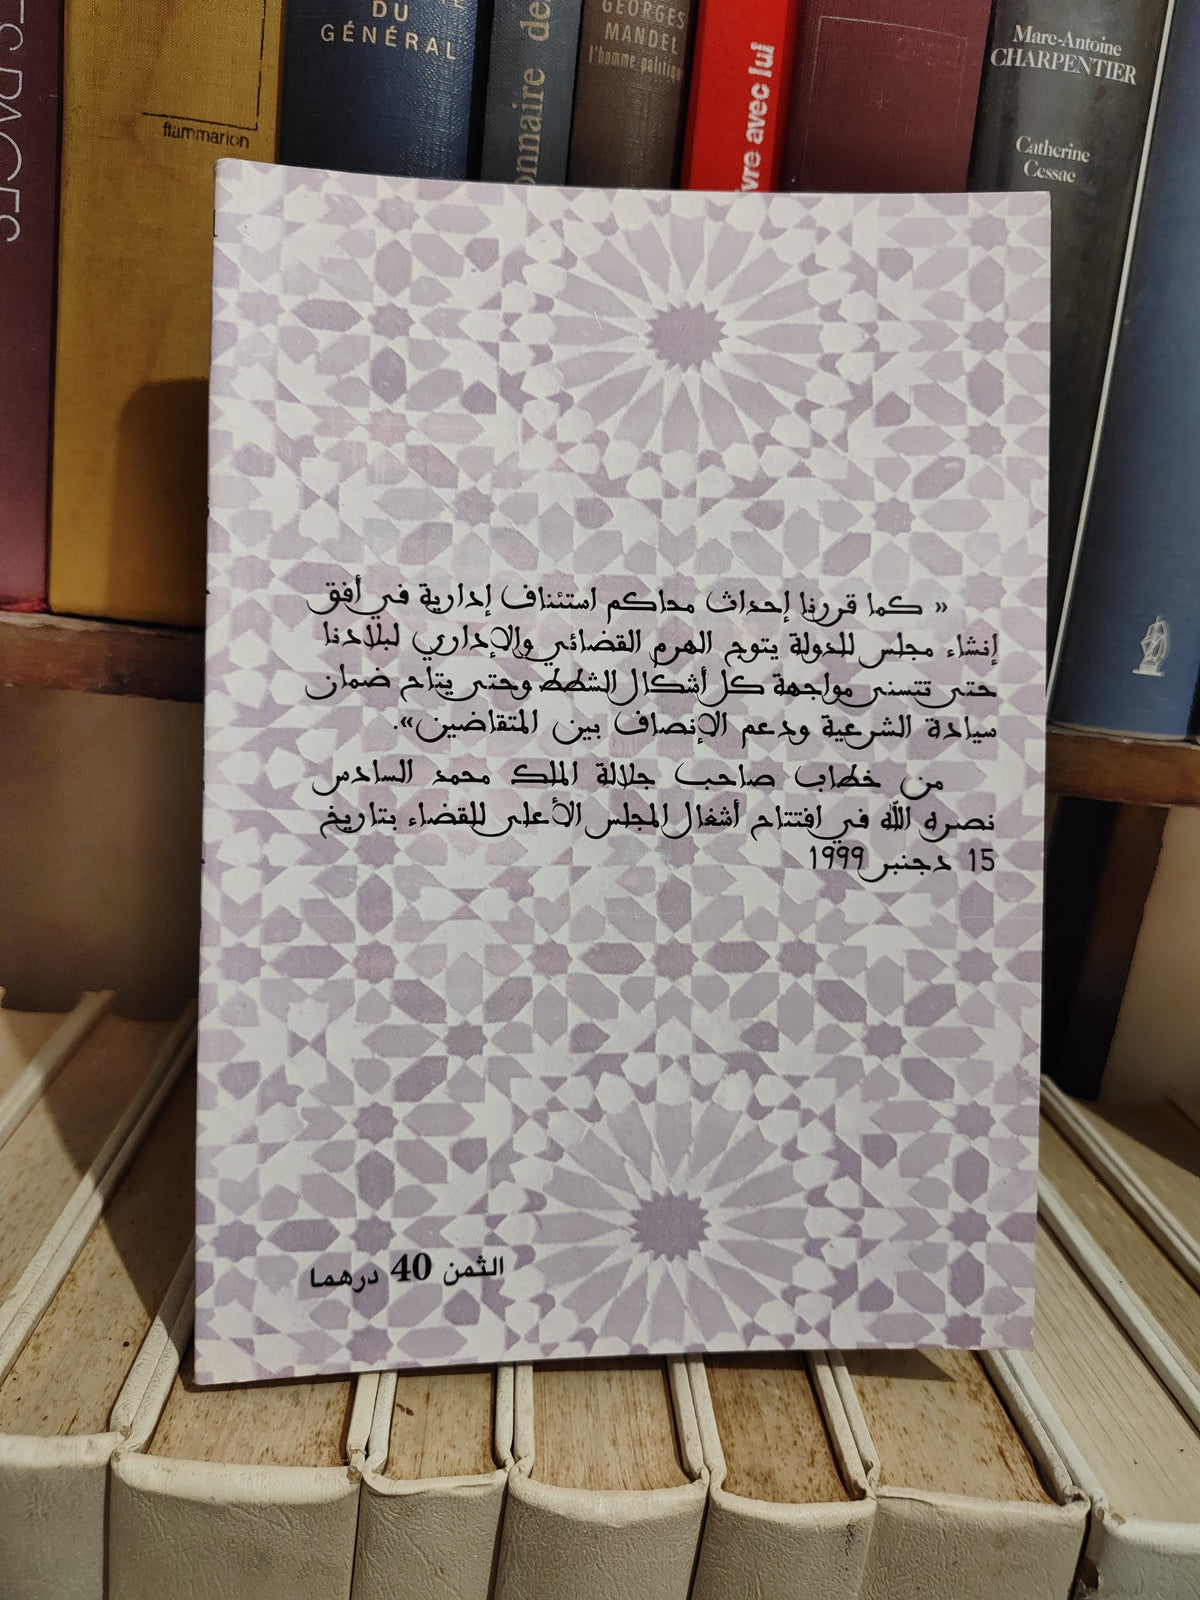 DU
GÉNÉRAL
flammarion
onnaire de
GEORGES
MANDEL
l'homme politique
vre avec lui
Marc-Antoine
CHARPENTIER
Catherine
Cessac
« كما قررنا إحداث محاكم استئناف إدارية في أفق
إنشاء مجلس للدولة يتوج الهرم القضائي والإداري لبلادنا
حتى تتسنى مواجهة كل أشكال الشطط وحتى يتاح ضمان
سيادة الشرعية ودعم الإنصاف بين المتقاضين».
من خطاب صاحب جلالة الملك محمد السادس
نصره الله في افتتاح أشغال المجلس الأعلى للقضاء بتاريخ
15 دجنبر 1999
الثمن 40 درهما